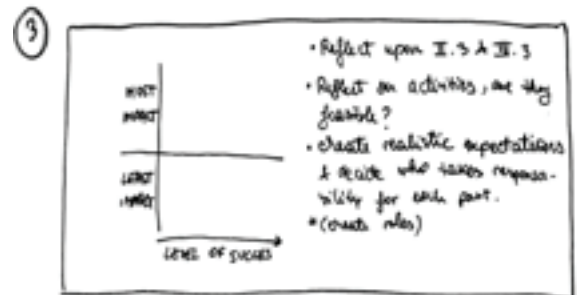 3
MOST
IMPACT
LEAST
IMPACT
LEVEL OF SUCCES
• Reflect upon II.3 & III.3
• Reflect on activities, are they
feasible?
• create realistic expectations
& decide who takes responsa-
bility for each part.
• (create roles)